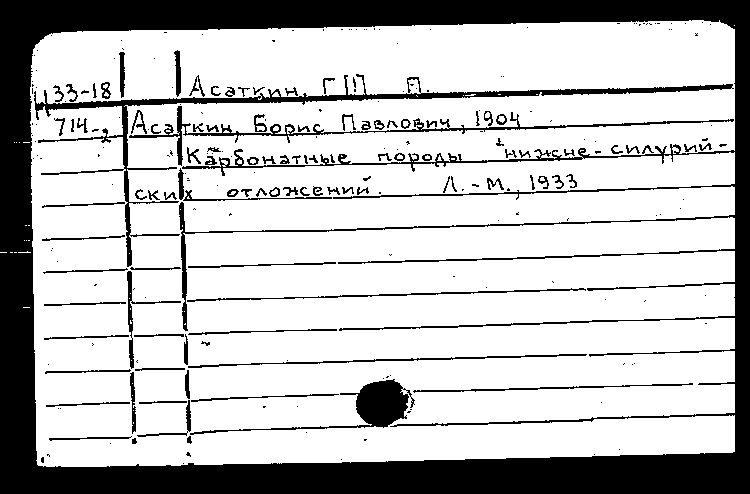 И33-18 Асаткин, Г[!] П.
714-2 Асаткин, Борис Павлович, 1904
Карбонатные породы нижне-силурий-
ских отложений. Л.-М., 1933